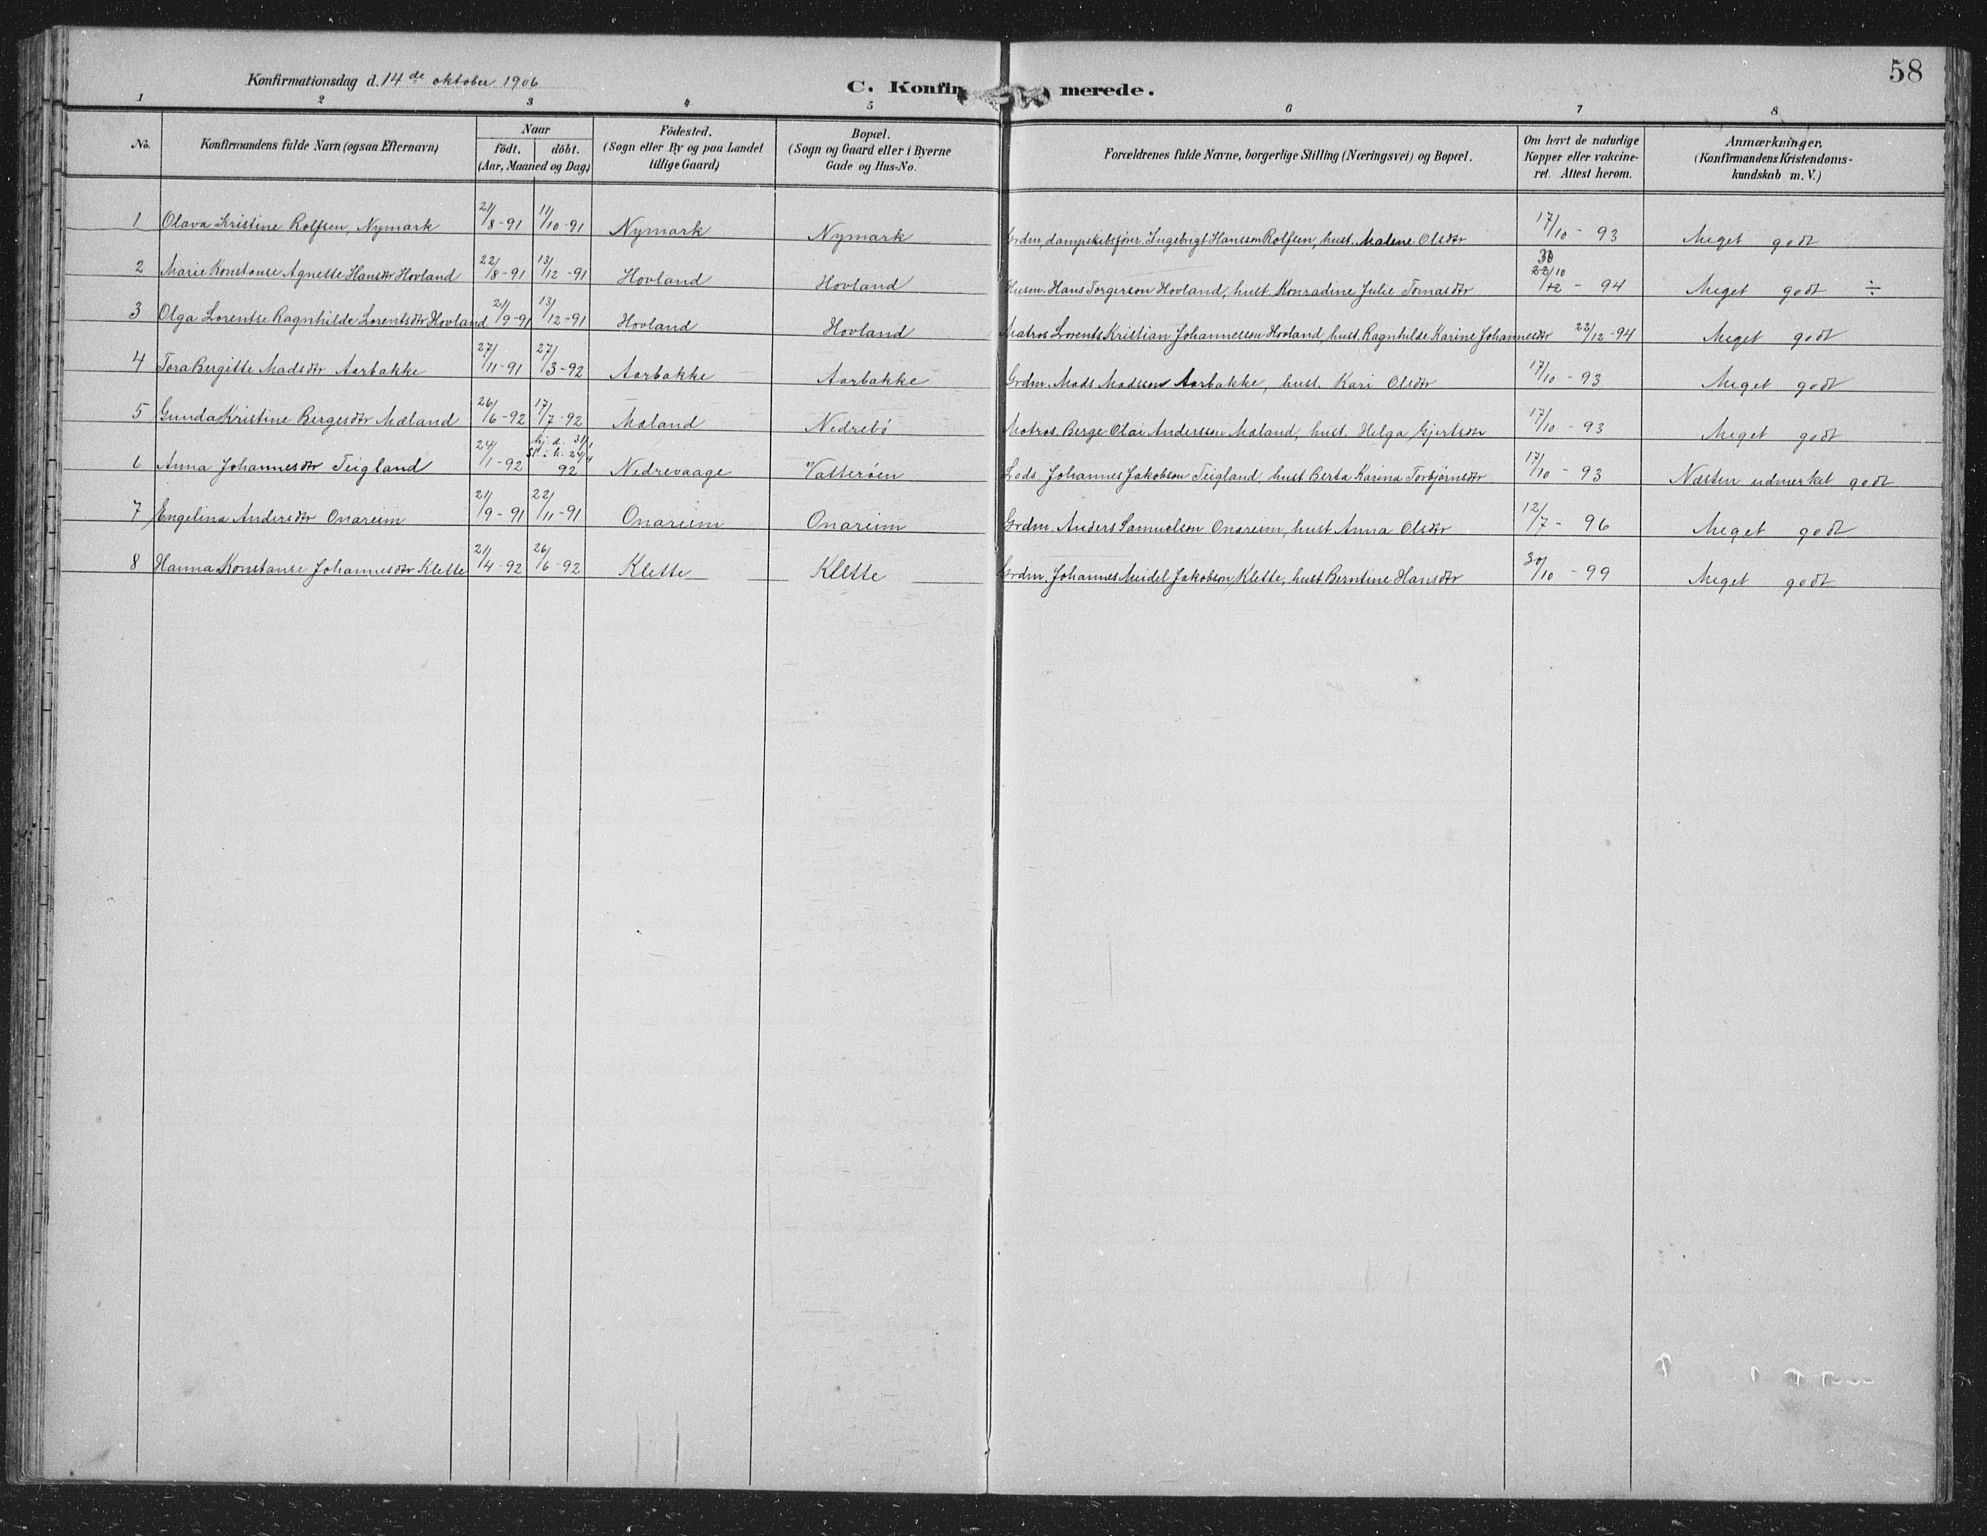 58
Konfirmationsdag d. 14de oktober 1906
C. Konfir merede.
1 2 3 4 5 6 7 8
No. Konfirmandens fulde Navn (ogsaa Efternavn) Naar födt. döbt. (Aar, Maaned og Dag) Födested. (Sogn eller By og paa Landet tillige Gaard) Bopæl. (Sogn og Gaard eller i Byerne Gade og Hus-No. Forældrenes fulde Navne, borgerlige Stilling (Næringsvei) og Bopæl. Om havt de naturlige Kopper eller vakcineret. Attest herom. Anmærkninger. (Konfirmandens Kristendomskundskab m. V.)
1 Olava Kristine Rolfsen, Nymark 21/8-91 11/10-91 Nymark Nymark Grdm, dampskibsfører Ingebrigt Hansen Rolfsen, hust. Malene Olsdtr 17/10-93 Meget godt
2 Marie Konstanse Agnette Hansdtr Hovland 22/8-91 13/12-91 Hovland Hovland Husm. Hans Torgerson Hovland, hust. Konradine Julie Tomasdtr 30/10 22/12-94 Meget godt ÷
3 Olga Lorentse Ragnhilde Lorentsdtr Hovland 21/9-91 13/12-91 Hovland Hovland Matros Lorents Kristian Johannesson Hovland, hust. Ragnhilde Karine Johannesdtr 22/12-94 Meget godt
4 Tora Bergitte Madsdtr Aarbakke 27/11-91 27/3-92 Aarbakke Aarbakke Grdm. Mads Madssen Aarbakke, hust. Kari Olsdtr 17/10-93 Meget godt
5 Gunda Kristine Bergesdtr Mæland 26/6-92 17/7-92 Mæland Nedrebö Matros Berge Olai Anderssen Mæland, hust. Helga Gjertsdtr 17/10-93 Meget godt
6 Anna Johannesdtr Teigland 24/1-92 hj. d. 31/1 st. i k. 24/4 92 Nedrevaage Vatteröen Lods Johannes Jakobson Teigland, hust Berta Karina Torbjørnsdtr 17/10-93 Næsten udmerket godt
7 Engelina Andersdtr Onareim 21/9-91 22/11-91 Onareim Onareim Grdm. Anders Samuelson Onareim, hust Anna Olsdtr 12/7-96 Meget godt
8 Hanna Konstanse Johannesdtr Klette 21/4-92 26/6-92 Klette Klette Grdm. Johannes Meidel Jakobson Klette, hust Berntine Hansdtr 30/10-99 Meget godt